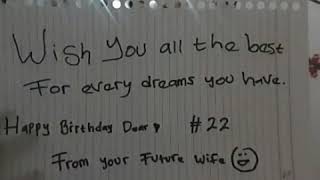 Wish You all the best
For every dreams you have.
Happy Birthday Dear, #22
From your Future Wife